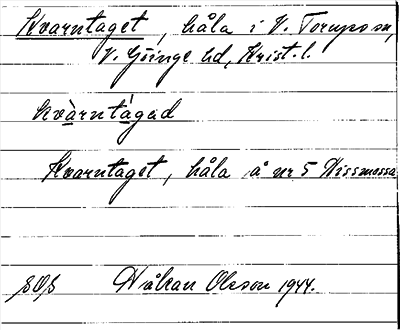 Kvarntaget, håla i V. Torups sn,
V. Göinge hd, Krist. l.
kvàrntágəd
Kvarntaget, håla å nr 5 Nissmossa
Håkan Olsson 1944.